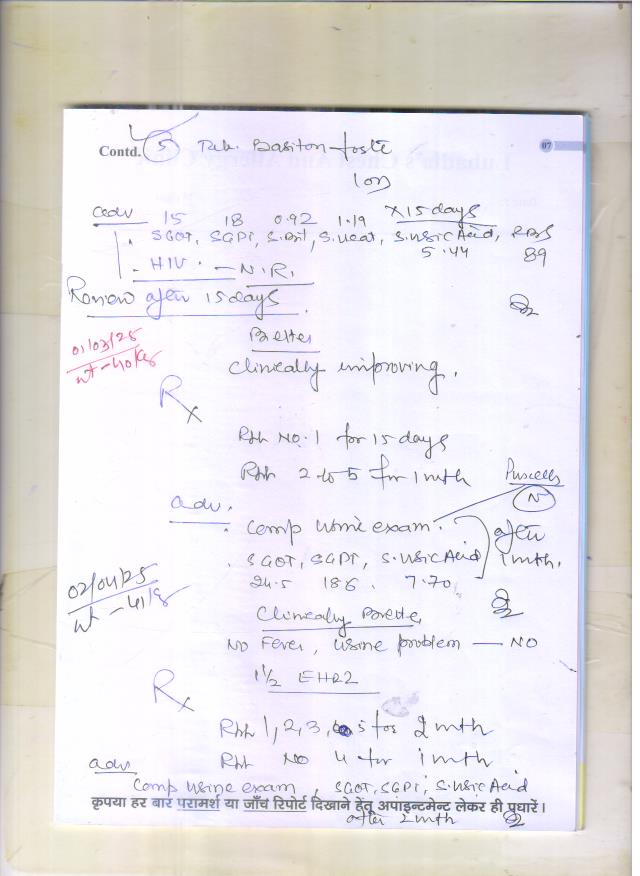 Contd. 5 Tab. Basiton forte 07
1 OD
adv 15 18 0.92 1.19 X 15 days
SGOT, SGPT, S. Bil, S. Creat, S. Uric Acid, RBS
5.44 89
HIV. - N.R.
Review after 15 days
01/03/25
wt - 40 kg
Better
Clinically improving.
Rx
Rpt No. 1 for 15 days
Rpt 2 to 5 for 1 mth
adv. Puscells
N
Comp urine exam. after
SGOT, SGPT, S. Uric Acid 1 mth.
24.5 18.6 7.70
02/04/25
wt - 41 kg
Clinically Better
No Fever, urine problem — NO
1½ EHRZ
Rx
Rpt 1, 2, 3, 5 for 2 mth
adv Rpt No 4 for 1 mth
Comp urine exam, SGOT, SGPT, S. Uric Acid
कृपया हर बार परामर्श या जाँच रिपोर्ट दिखाने हेतू अपांइन्टमेन्ट लेकर ही पधारें।
after 2 mth